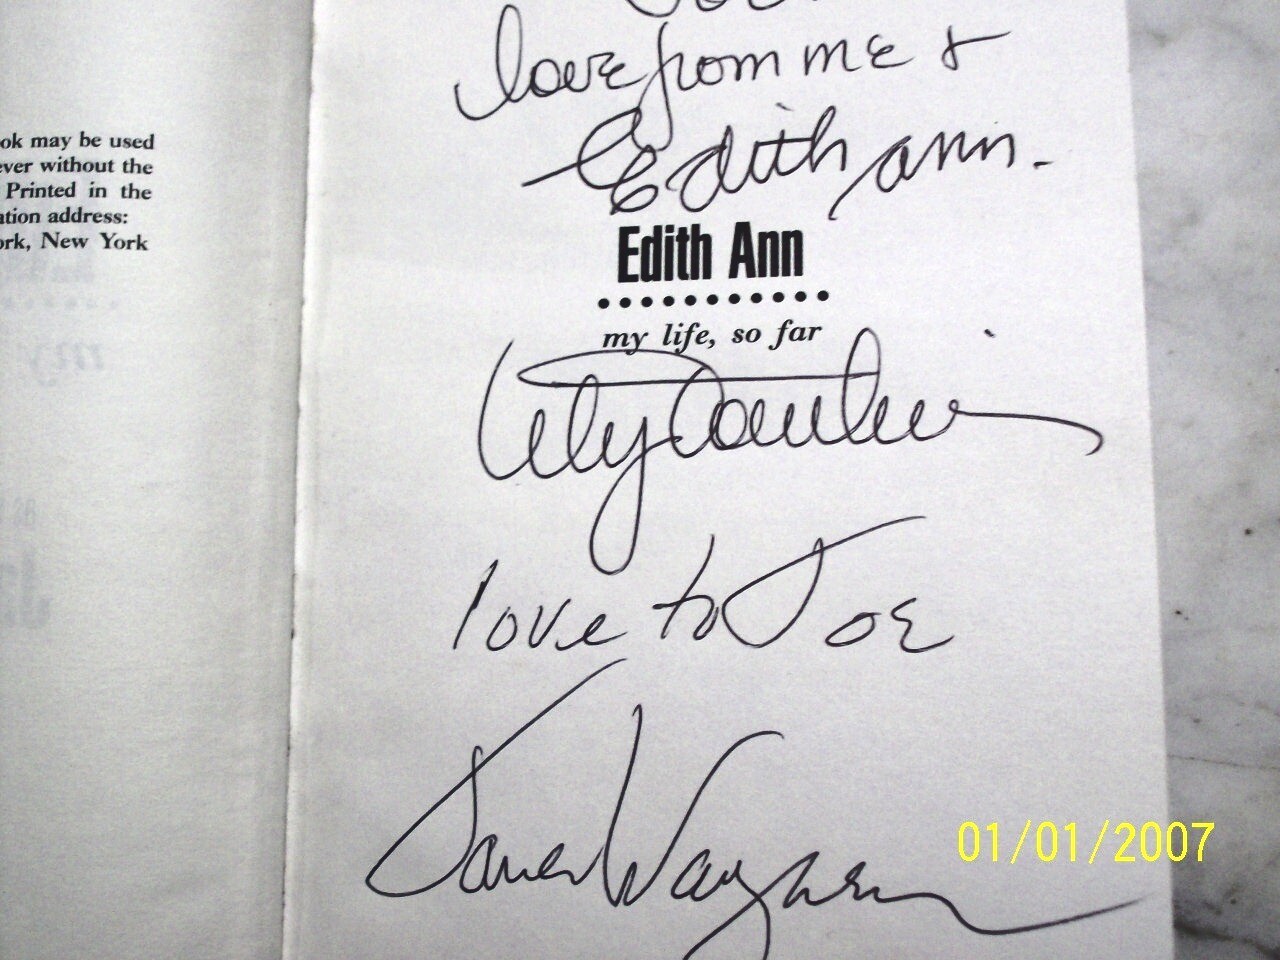 ok may be used
ever without the
Printed in the
ation address:
ork, New York
love from me &
Edith ann.
Edith Ann
my life, so far
Lily Tomlin
love to Joe
Jane Wagner
01/01/2007